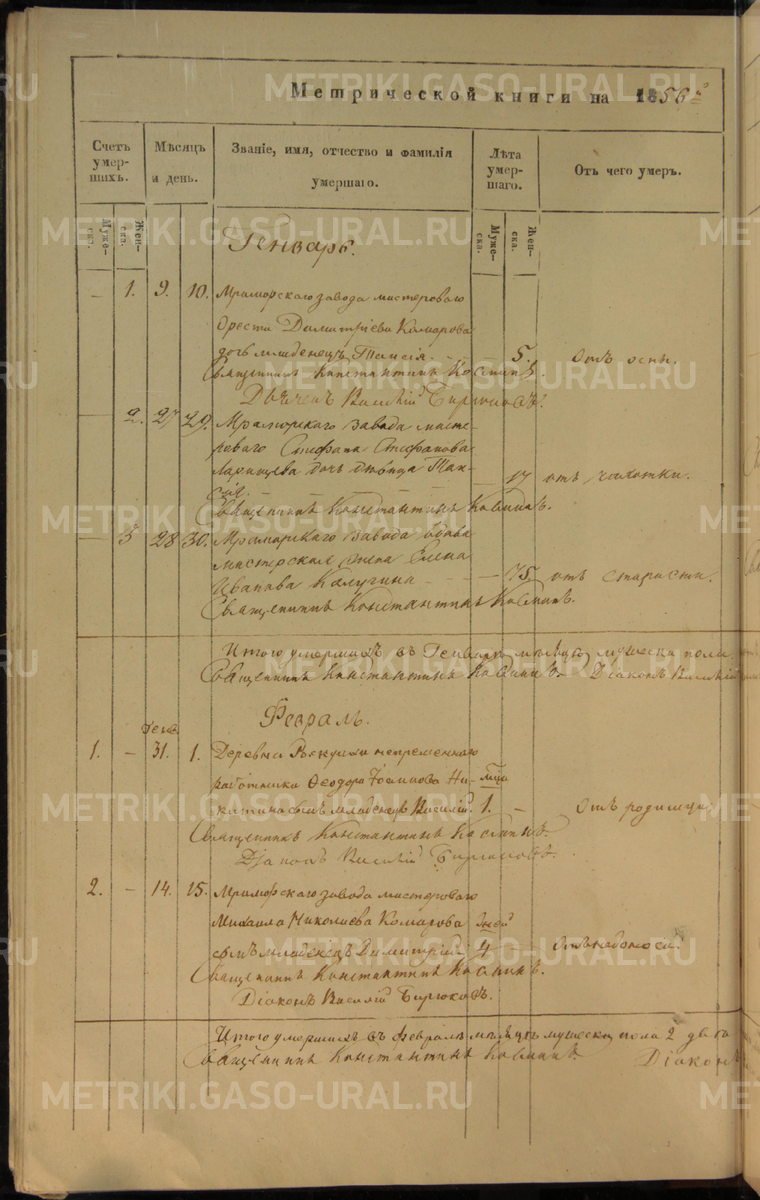 Метрической книги на 1856 г.
Счетъ умер-шихъ.
Мѣсяцъ и день.
Званіе, имя, отчество и фамилія умершаго.
Лѣта умер-шаго.
Отъ чего умеръ.
Муже-ска.
Жен-ска.
Муже-ска.
Жен-ска.
Генварь.
— 1. 9. 10. Мраморскаго завода мастероваго
Ореста Димитріева Комарова
дочь младенецъ Таисія. — 5. отъ оспы.
Священникъ Константинъ
Дьяконъ Василій Бирюковъ.
— 2. 27 29. Мраморскаго завода масте-
роваго Стефана Стефанова
дочь девица Таи-
сія. — — — 17 отъ чахотки.
Священникъ Константинъ
— 3 28 30. Мраморскаго завода вдова
мастерская жена Елена
Иванова Калугина — — — 75 отъ старости.
Священникъ Константинъ
Итого умершихъ въ Генваре мѣсяцѣ мужеска пола
Священникъ Константинъ Діаконъ Василій
Февраль.
Генв.
1. — 31. 1. Деревни непременнаго
работника Феодора Ни-
китина сынъ младенецъ Василій. 1. — отъ родимца.
Священникъ Константинъ
Діаконъ Василій Бирюковъ.
2. — 14. 15. Мраморскаго завода мастероваго
Михаила Николаева Комарова дней
сынъ младенецъ Димитрій 4
Священникъ Константинъ
Діаконъ Василій Бирюковъ.
Итого умершихъ въ Феврале мѣсяцѣ мужеска пола 2 два
Священникъ Константинъ Діаконъ
METRIKI.GASO-URAL.RU